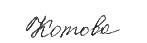 Котова